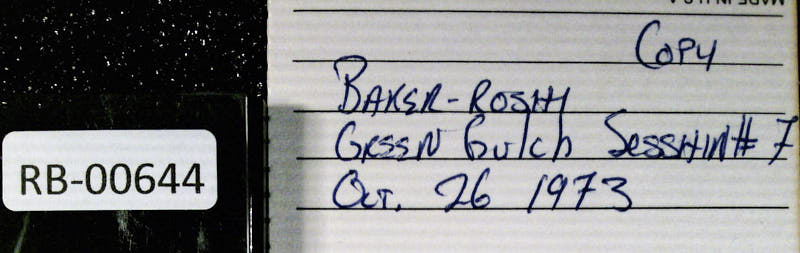 MADE IN U.S.A.
Copy
BAKER-ROSHI
GREEN Gulch SESSHIN# 7
Oct. 26 1973
RB-00644